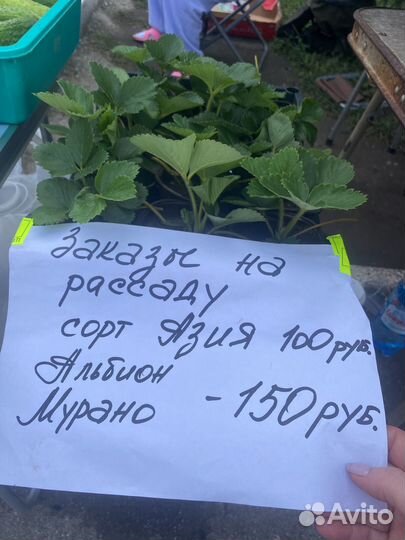 Заказы на
рассаду
сорт Азия 100 руб.
Альбион
Мурано - 150 руб.
Avito